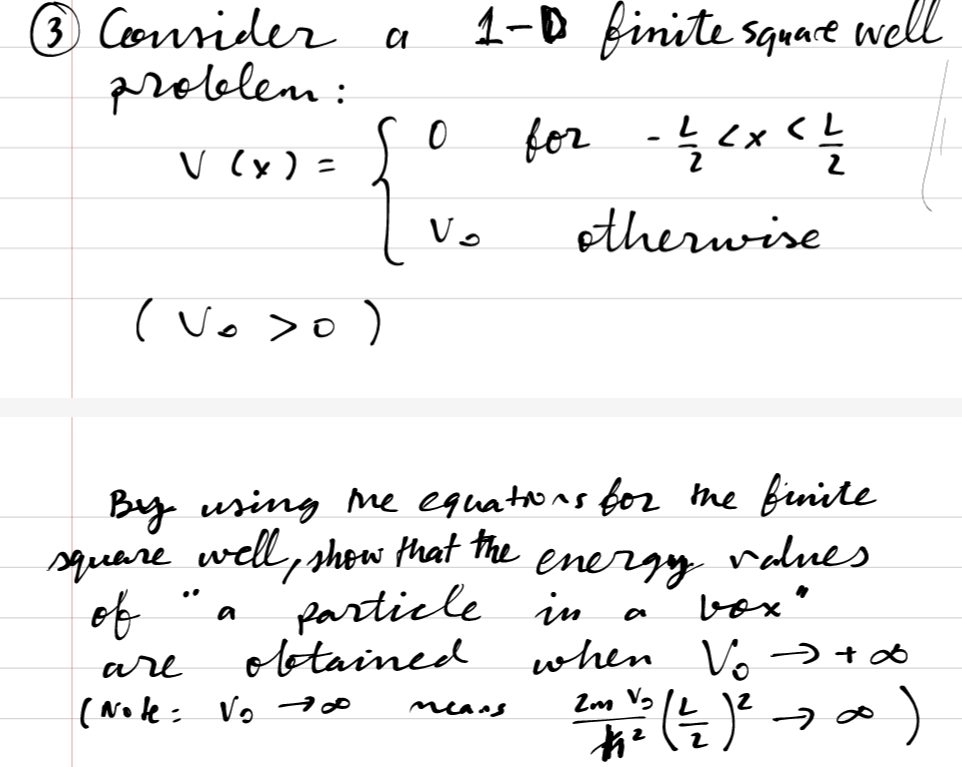 ③ Consider a 1-D finite square well
problem:
V(x) = { 0 for -L/2 < x < L/2
V₀ otherwise
(V₀ > 0)
By using the equations for the finite
square well, show that the energy values
of "a particle in a box"
are obtained when V₀ → +∞
(Note: V₀ → ∞ means 2mV₀/ħ² (L/2)² → ∞)